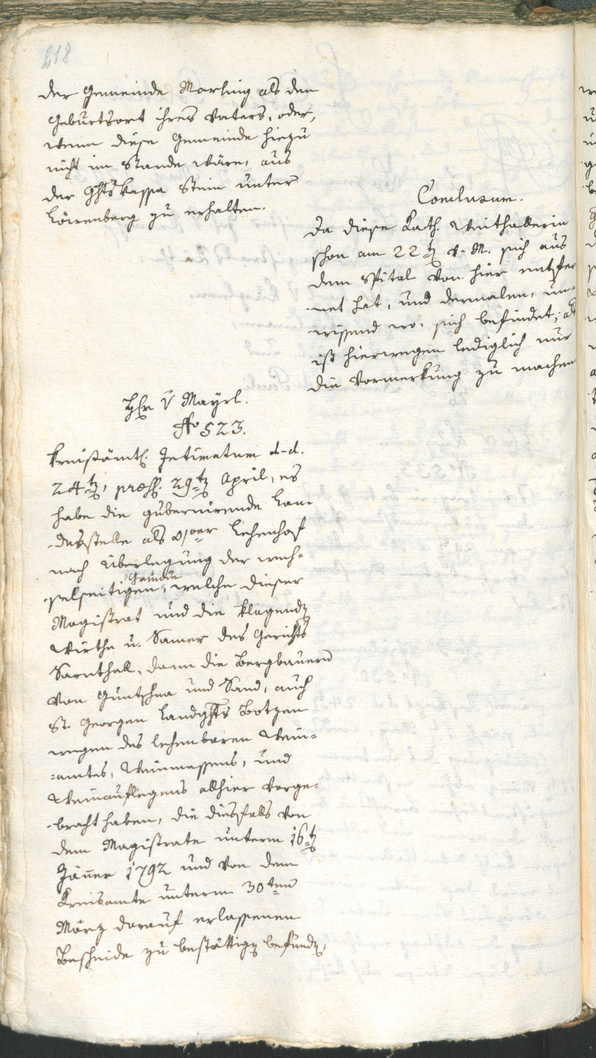 218
der Gemeinde Marling als dem
Geburtsort ihres Vaters, oder,
wenn diese Gemeinde hiezu
nicht im Stande wäre, aus
der Ghtskassa Stein unter
Löwenberg zu erhalten.
Conclusum.
Da diese Kath. Mitthallerin
schon am 22tz d. M. sich aus
dem Spital von hier entfer
-net hat, und dermalen, un-
-wissend wo, sich befindet; als
ist hierwegen lediglich nur
die Vormerkung zu machen
Hr v Mayrl.
No 523.
Kreisämtl. Intimatum d-d.
24tz, praes. 29tz April, es
habe die gubernirende Lan
-desstelle als oober Lehenhof
nach Überlegung der wech-
-selseitigen Gründe, welche dieser
Magistrat und die klagendtz
Wirthe u. Samer des Gerichts
Sarnthall, dann die Bergbauern
von Guntschna und Sand, auch
St. Georgen Landghts Botzen
wegen des lehenbaren Wein-
-amtes, Weinmessens, und
Weinauflegens allhier vorge-
-bracht haben, die diesfalls von
dem Magistrate unterm 16tz
Jäner 1792 und von dem
Kreisamte unterm 30ten
März darauf erlassenen
Bescheide zu bestättigtz befundtz,